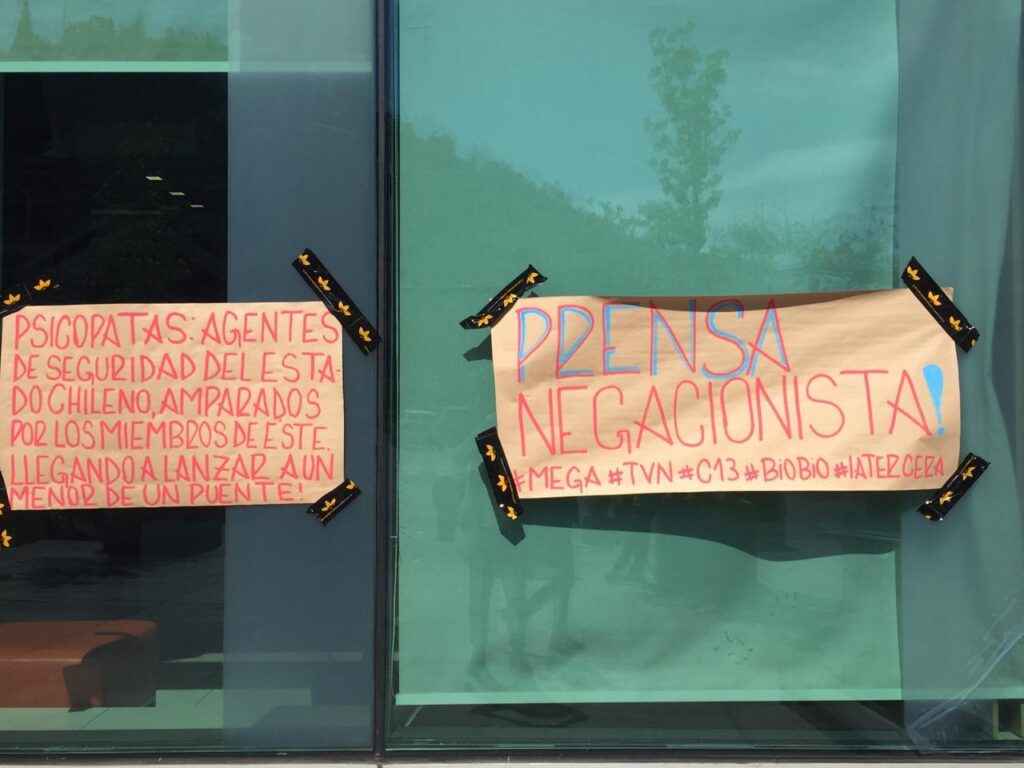 PSICOPATAS: AGENTES
DE SEGURIDAD DEL ESTA-
DO CHILENO, AMPARADOS
POR LOS MIEMBROS DE ESTE.
LLEGANDO A LANZAR A UN
MENOR DE UN PUENTE!
PRENSA
NEGACIONISTA!
#MEGA #TVN #C13 #BIOBIO #LATERCERA